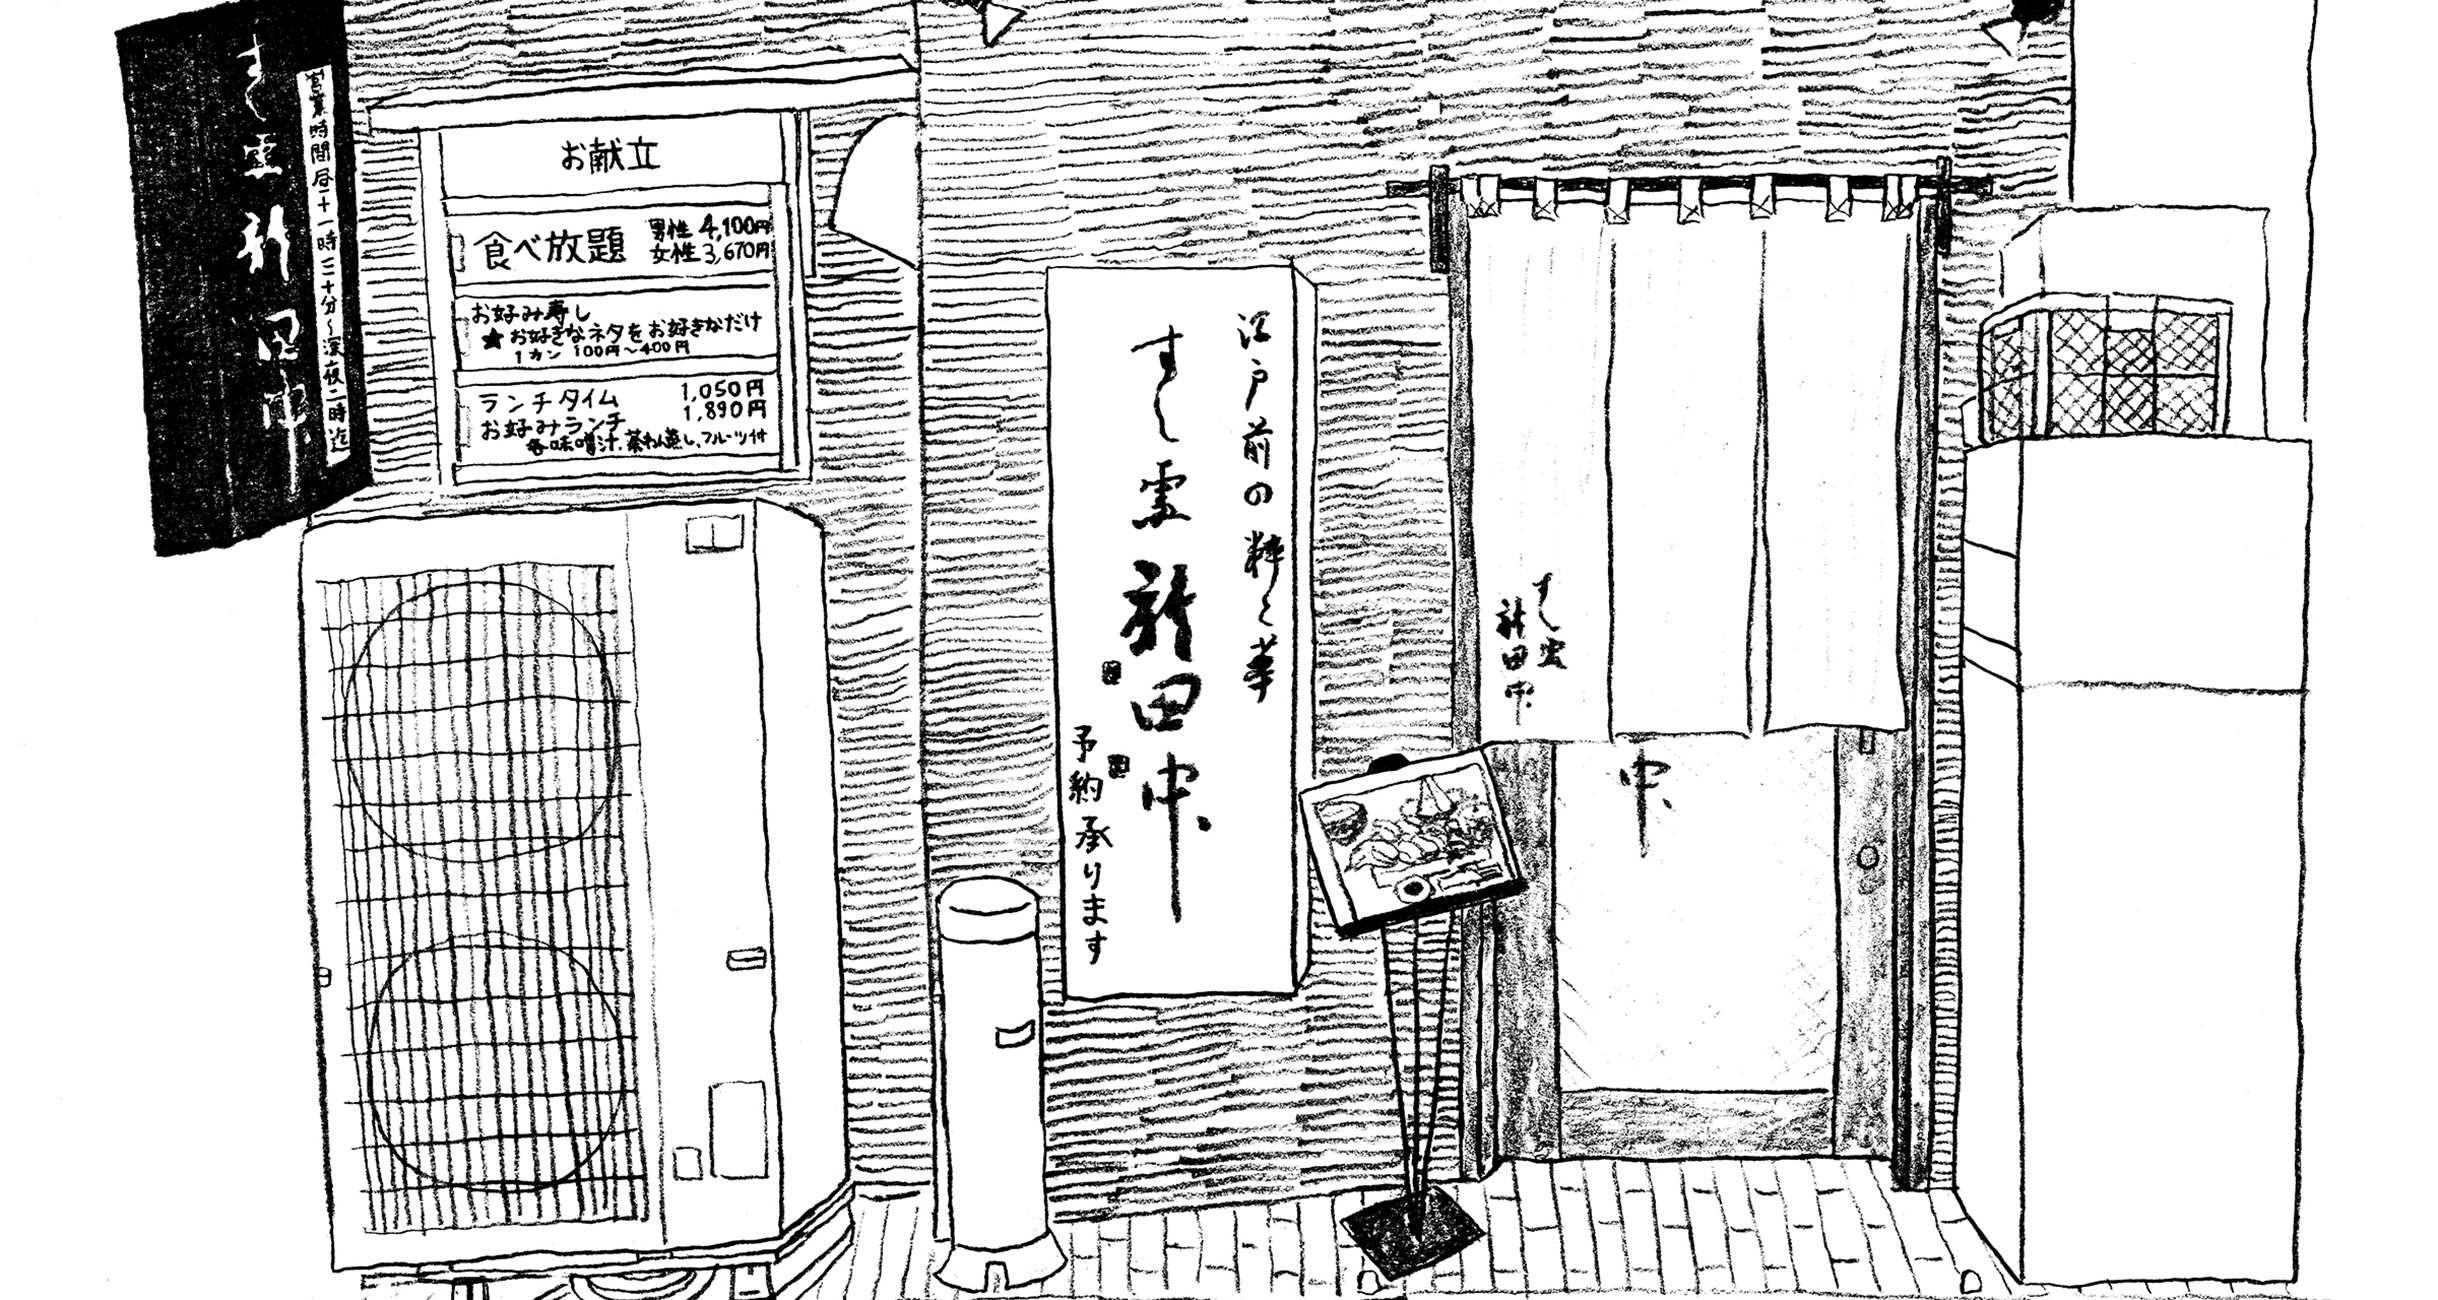 すし雲新田中
営業時間昼十一時三十分〜深夜二時迄
お献立
食べ放題 男性 4,100円
女性 3,670円
お好み寿し
★お好きなネタをお好きなだけ
1カン 100円〜400円
ランチタイム 1,050円
お好みランチ 1,890円
各味噌汁、茶わん蒸し、フルーツ付
江戸前の粋と華
すし雲新田中
予約承ります
すし雲
新田中
中